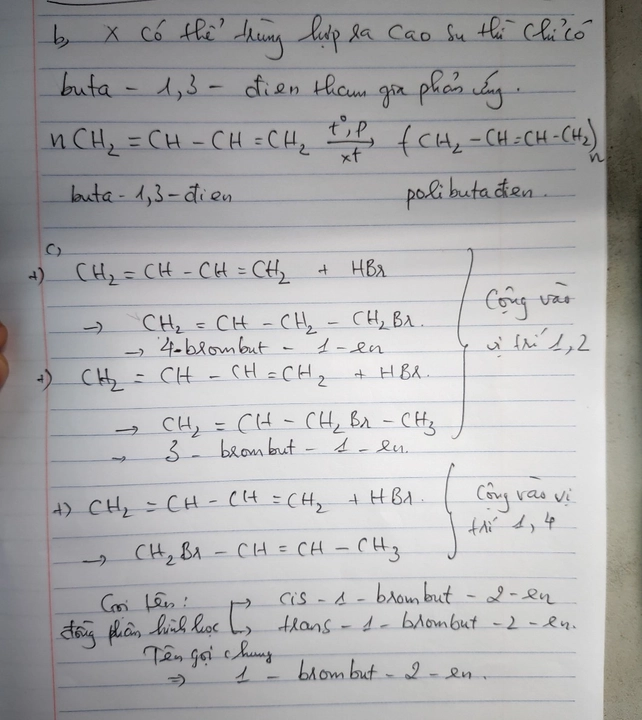 b, X có thể trùng hợp ra cao su thì chỉ có
buta - 1,3 - đien tham gia phản ứng.
nCH₂ = CH - CH = CH₂ t°, p xt → (CH₂ - CH = CH - CH₂)n
buta - 1,3 - đien polibutađen.
c,
+) CH₂ = CH - CH = CH₂ + HBr
→ CH₂ = CH - CH₂ - CH₂Br.
→ 4-brombut - 1 - en
+) CH₂ = CH - CH = CH₂ + HBr.
→ CH₂ = CH - CH₂Br - CH₃
→ 3 - brombut - 1 - en.
Cộng vào
vị trí 1,2
+) CH₂ = CH - CH = CH₂ + HBr.
→ CH₂Br - CH = CH - CH₃
Cộng vào vị
trí 1,4
Gọi tên: → cis - 1 - brombut - 2 - en
đồng phân hình học → trans - 1 - brombut - 2 - en.
Tên gọi chung
⇒ 1 - brombut - 2 - en.